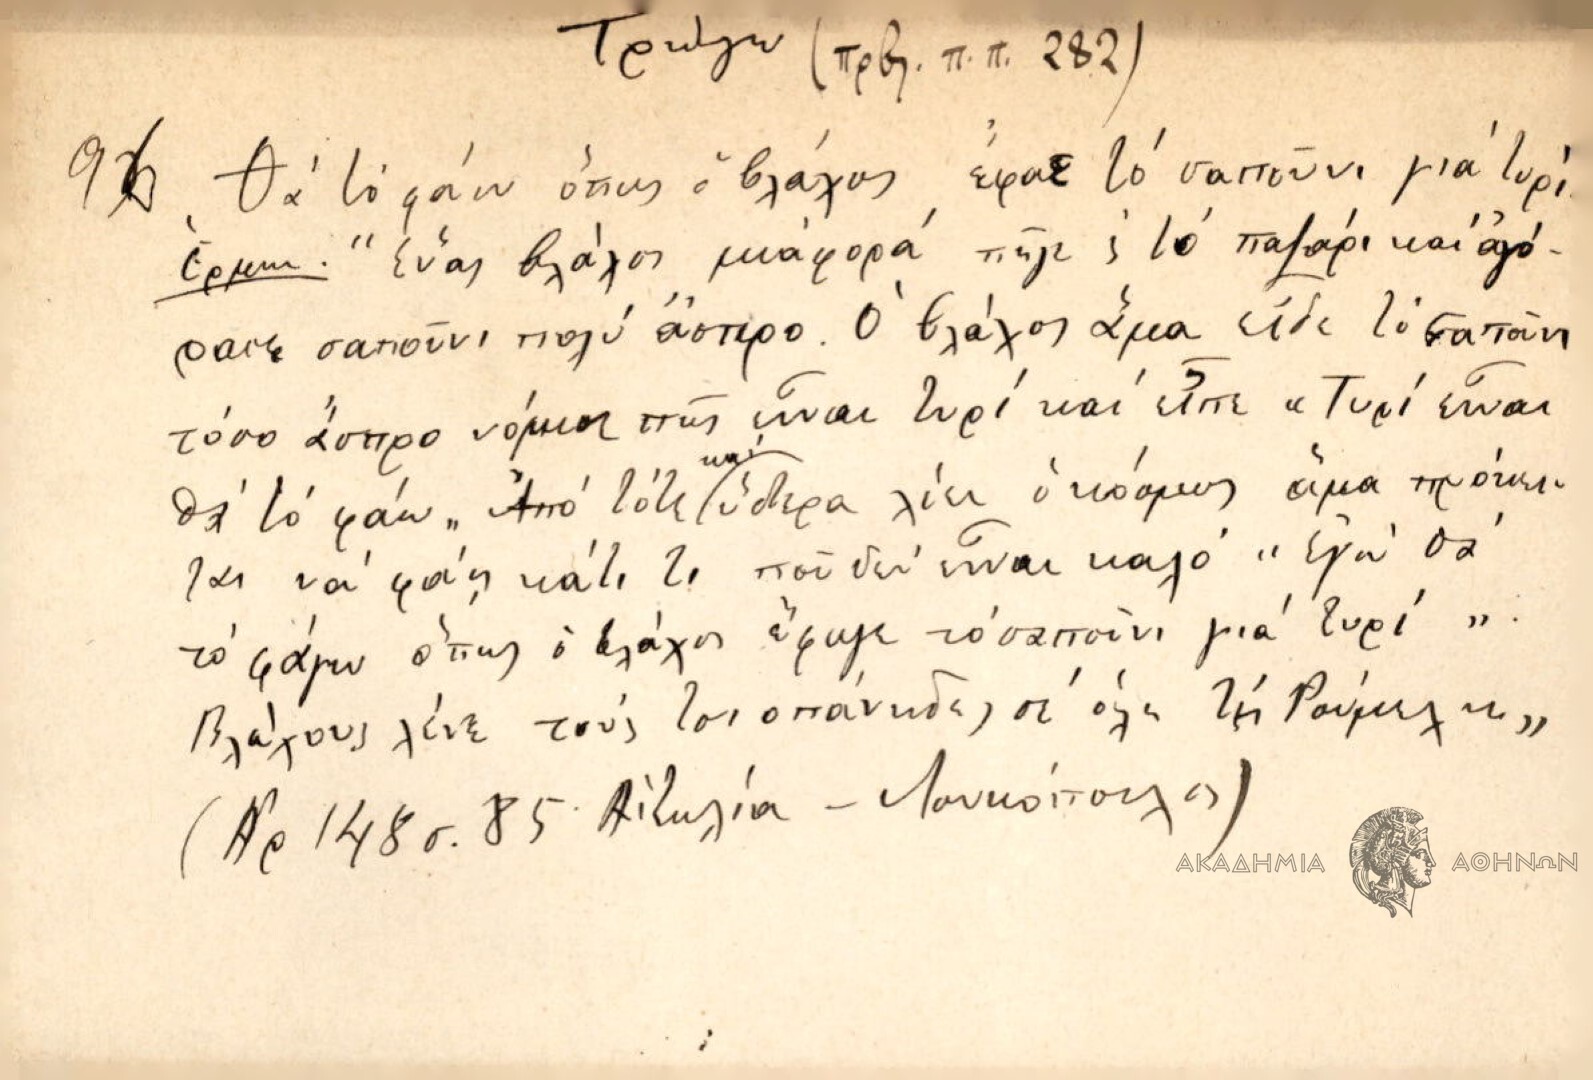 Τρώγω (πρβλ. π.π. 282)
Θὰ τὸ φάω ὅπως ὁ βλάχος ἔφαε τὸ σαποῦνι γιὰ τυρί.
Ἑρμην. "Ἕνας βλάχος μιὰ φορὰ πῆγε 'ς τὸ παζάρι καὶ ἀγό-
ρασε σαποῦνι πολὺ ἄσπρο. Ὁ βλάχος ἅμα εἶδε τὸ σαποῦνι
τόσο ἄσπρο νόμισε πὼς εἶναι τυρὶ καὶ εἶπε « Τυρὶ εἶναι
θὰ τὸ φάω „ Ἀπὸ τότε καὶ ὕστερα λέει ὁ κόσμος ἅμα πρόκει-
ται νὰ φάῃ κάτι τι ποῦ δὲν εἶναι καλὸ " Ἐγὼ θὰ
τὸ φάγω ὅπως ὁ βλάχος ἔφαγε τὸ σαποῦνι γιὰ τυρὶ ".
Βλάχους λένε τοὺς τσιοπάνηδες σὲ ὅλη τὴ Ρούμελη „
(Ἀρ 148 σ. 85. Αἰτωλία – Λουκόπουλος)
ΑΚΑΔΗΜΙΑ ΑΘΗΝΩΝ